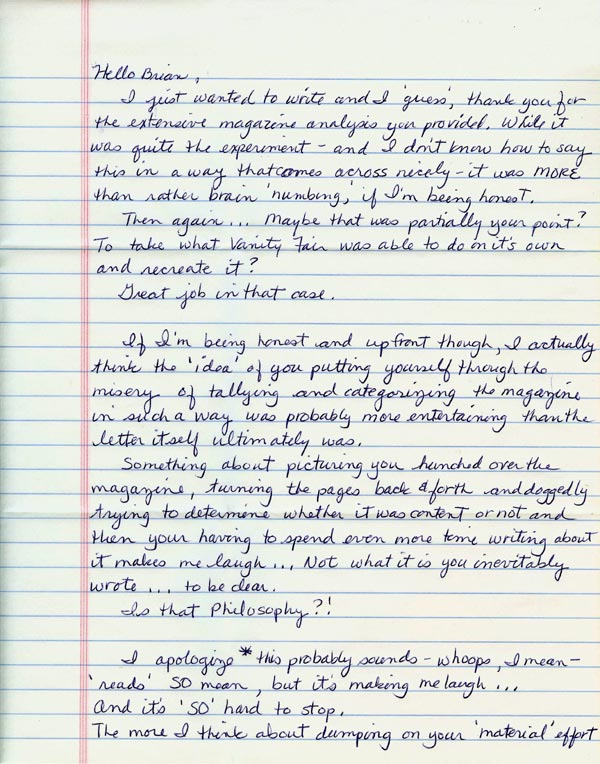 Hello Brian,
I just wanted to write and I 'guess', thank you for
the extensive magazine analysis you provided. While it
was quite the experiment - and I don't know how to say
this in a way that comes across nicely - it was MORE
than rather brain 'numbing,' if I'm being honest.
Then again... Maybe that was partially your point?
To take what Vanity Fair was able to do on it's own
and recreate it?
Great job in that case.
If I'm being honest and upfront though, I actually
think the 'idea' of you putting yourself through the
misery of tallying and categorizing the magazine
in such a way was probably more entertaining than the
letter itself ultimately was.
Something about picturing you hunched over the
magazine, turning the pages back & forth and doggedly
trying to determine whether it was content or not and
then your having to spend even more time writing about
it makes me laugh... Not what it is you inevitably
wrote... to be clear.
Is that Philosophy?!
I apologize * this probably sounds - whoops, I mean -
'reads' SO mean, but it's making me laugh...
And it's 'SO' hard to stop.
The more I think about dumping on your 'material' effort